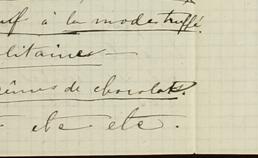 à la mode truffé.
litaine —
crêmes de chocolat.
etc etc.